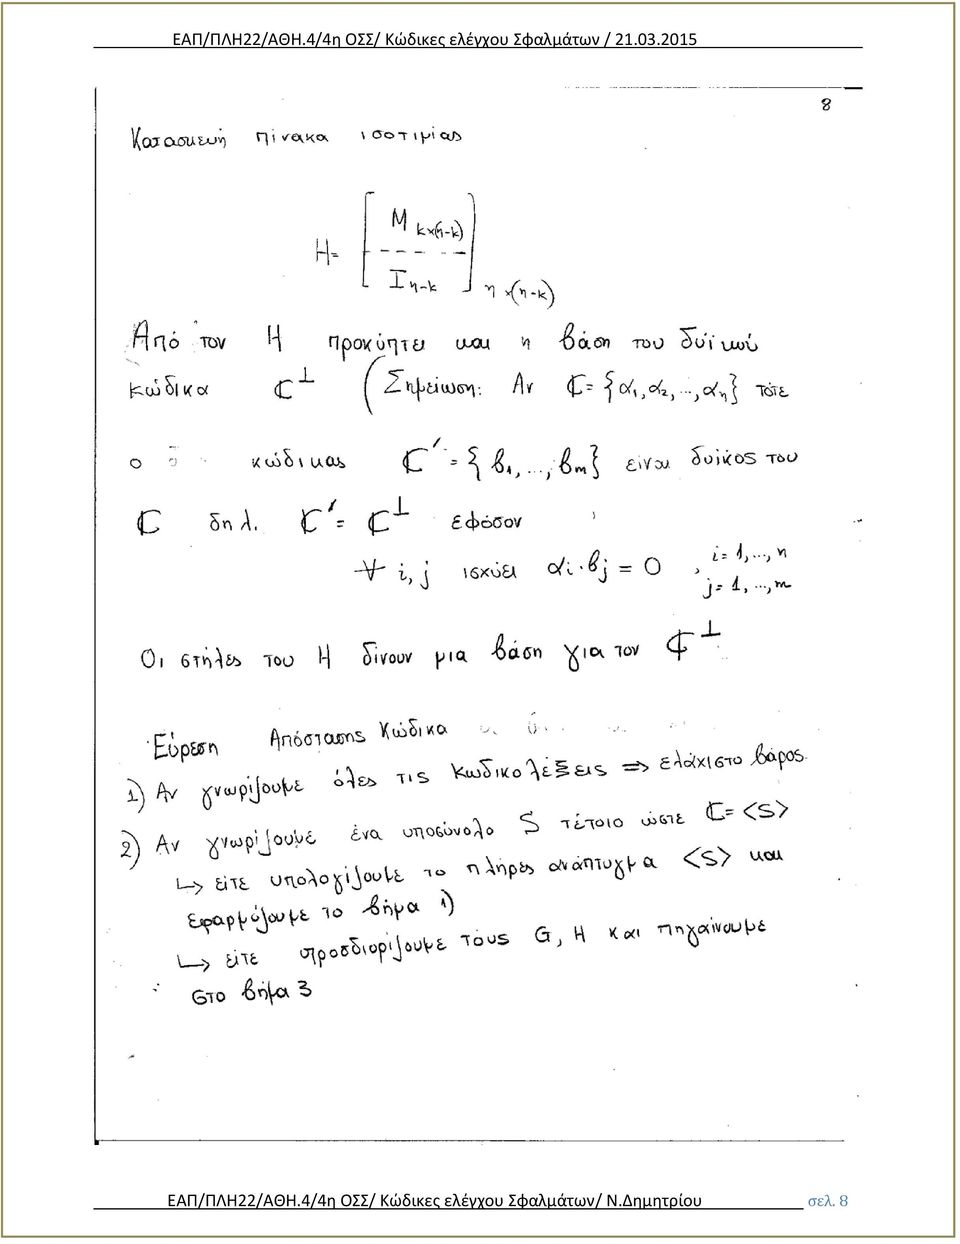 ΕΑΠ/ΠΛΗ22/ΑΘΗ.4/4η ΟΣΣ/ Κώδικες ελέγχου Σφαλμάτων / 21.03.2015
8
Κατασκευή πίνακα ισοτιμίας
H= [ M k×(n-k)
I n-k ] n×(n-k)
Από τον H προκύπτει και η βάση του δυϊκού
κώδικα C⊥ (Σημείωση: Αν C= {α₁,α₂,...,αₙ} τότε
ο κώδικας C' = {β₁,...,βₘ} είναι δυϊκός του
C δηλ. C' = C⊥ εφόσον
∀ i, j ισχύει αi·βj = 0 , i= 1,...,n
j= 1, ...,m
Οι στήλες του H δίνουν μια βάση για τον C⊥
Εύρεση Απόστασης Κώδικα
1) Αν γνωρίζουμε όλες τις κωδικολέξεις => ελάχιστο βάρος.
2) Αν γνωρίζουμε ένα υποσύνολο S τέτοιο ώστε C= <S>
↳ είτε υπολογίζουμε το πλήρες ανάπτυγμα <S> και
εφαρμόζουμε το βήμα 1)
↳ είτε προσδιορίζουμε τους G, H και πηγαίνουμε
στο βήμα 3
ΕΑΠ/ΠΛΗ22/ΑΘΗ.4/4η ΟΣΣ/ Κώδικες ελέγχου Σφαλμάτων/ Ν.Δημητρίου σελ. 8